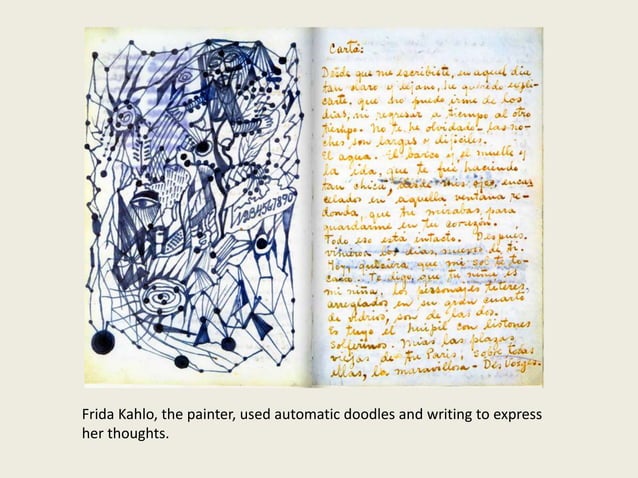 1234567890
Carta:
Desde que me escribiste, en aquel día
tan claro y lejano, he querido expli-
carte, que no puedo irme de los
días, ni regresar a tiempo al otro
tiempo. No te he olvidado - las no-
ches son largas y difíciles.
El agua. El barco y el muelle y
la ida, que te fué haciendo
tan chica, desde mis ojos, encar
celados en aquella ventana re-
donda, que tú mirabas para
guardarme en tu corazón.
Todo eso está intacto. Después
vinieron los días, nuevos de ti.
Hoy, quisiera que mi sol te to-
cara. Te digo, que tu niña es
mi niña, los personajes títeres,
arreglados en su gran cuarto
de vidrio, son de las dos.
Es tuyo el huipil con listones
solferinos. Mías las plazas
viejas de tu Paris, sobre todas
ellas, la maravillosa - Des Vosges.
Frida Kahlo, the painter, used automatic doodles and writing to express
her thoughts.